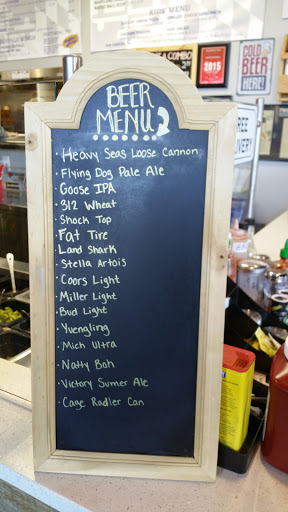 KIDS' MENU
COMBO
2015
COLD
BEER
HERE!
FREE
DELIVERY
BEER
MENU
· Heavy Seas Loose Cannon
· Flying Dog Pale Ale
· Goose IPA
· 312 Wheat
· Shock Top
· Fat Tire
· Land Shark
· Stella Artois
· Coors Light
· Miller Light
· Bud Light
· Yuengling
· Mich Ultra
· Natty Boh
· Victory Sumer Ale
· Cage Radler Can